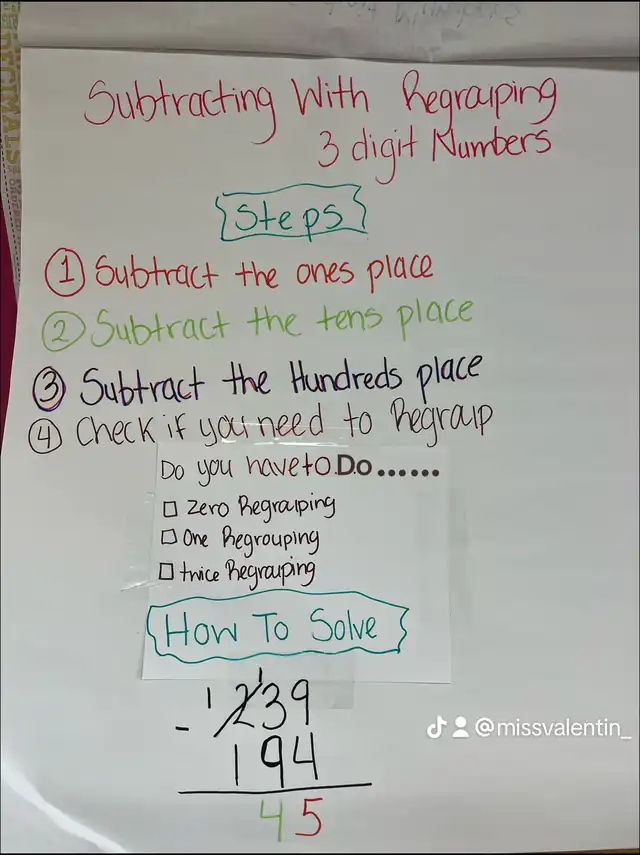 DECIMALS
Subtracting With Regrouping
3 digit Numbers
Steps
① Subtract the ones place
② Subtract the tens place
③ Subtract the Hundreds place
④ Check if you need to Regroup
Do you have to Do......
□ Zero Regrouping
□ One Regrouping
□ twice Regrouping
How To Solve
1 1
- 239
194
45
@missvalentin_